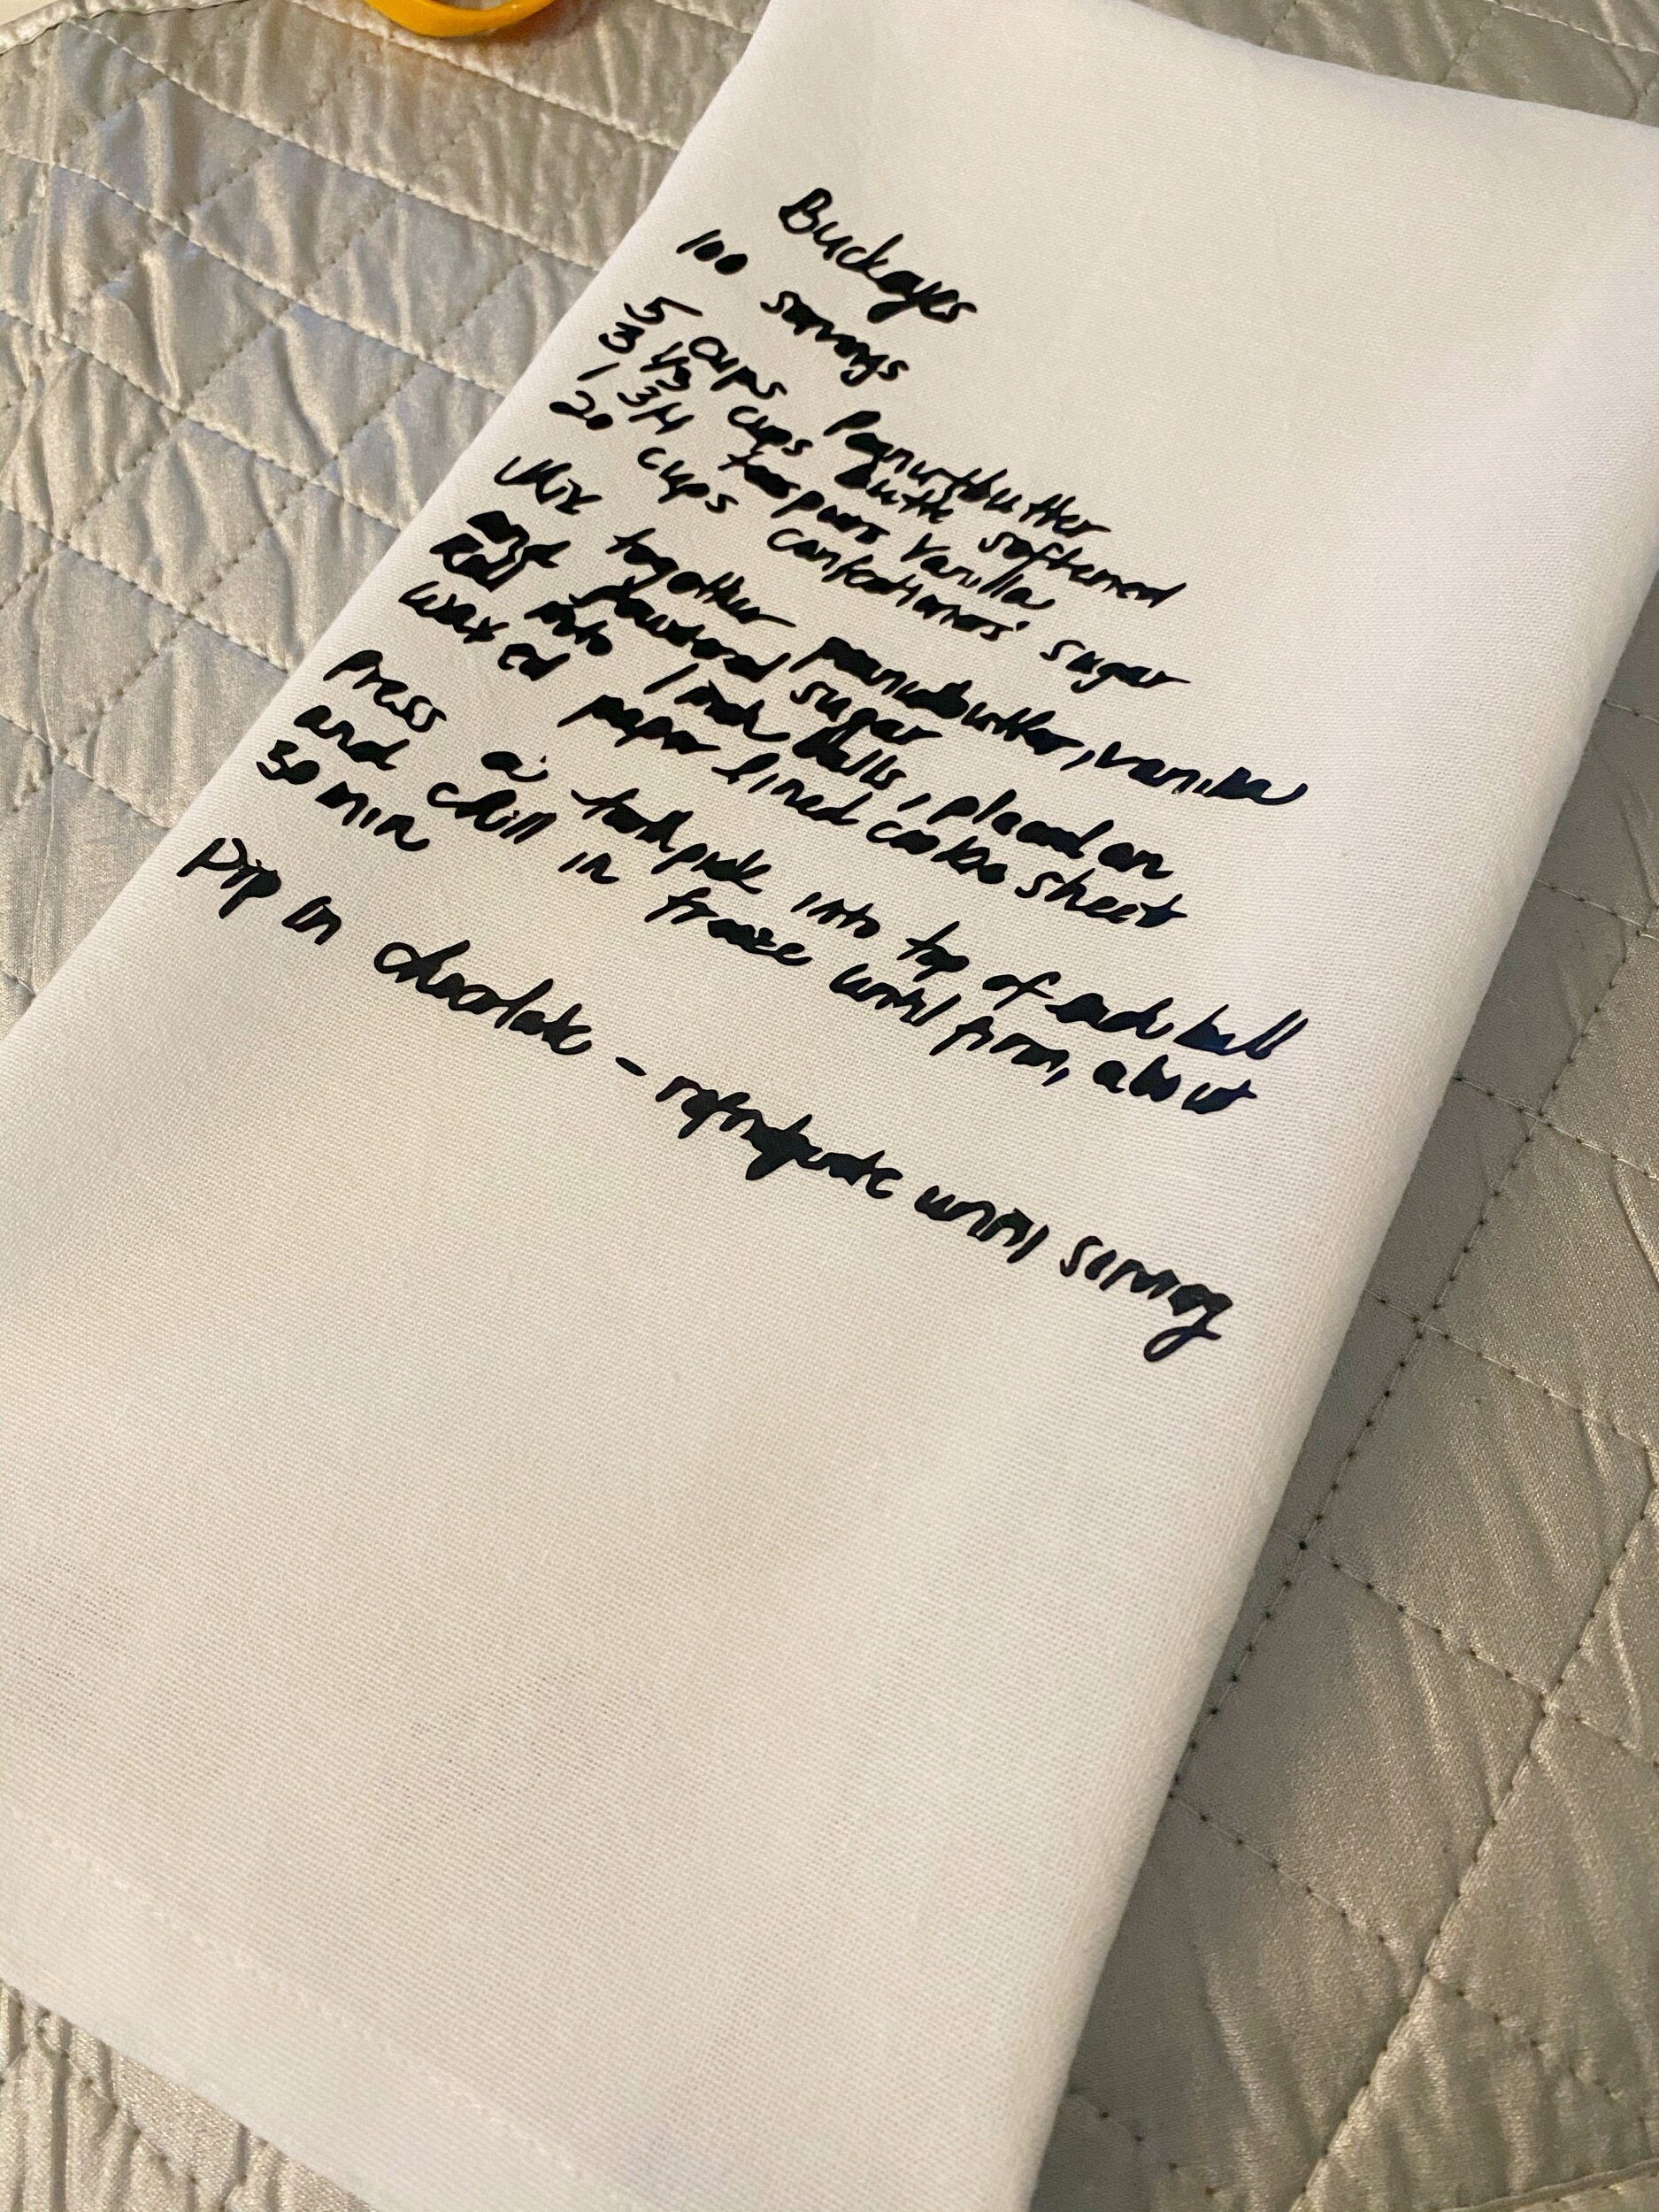 Buckeyes
100 servings
5 cups Peanutbutter
3 1/3 cups butter softened
1 3/4 teaspoons Vanilla
20 cups Confectioners' sugar
Mix together peanutbutter, vanilla
and powdered sugar
Roll into 1 inch balls, placed on
waxed paper lined cookie sheet
Press a toothpick into top of each ball
and chill in freeze until firm, about
30 min
Dip in chocolate - refrigerate until serving